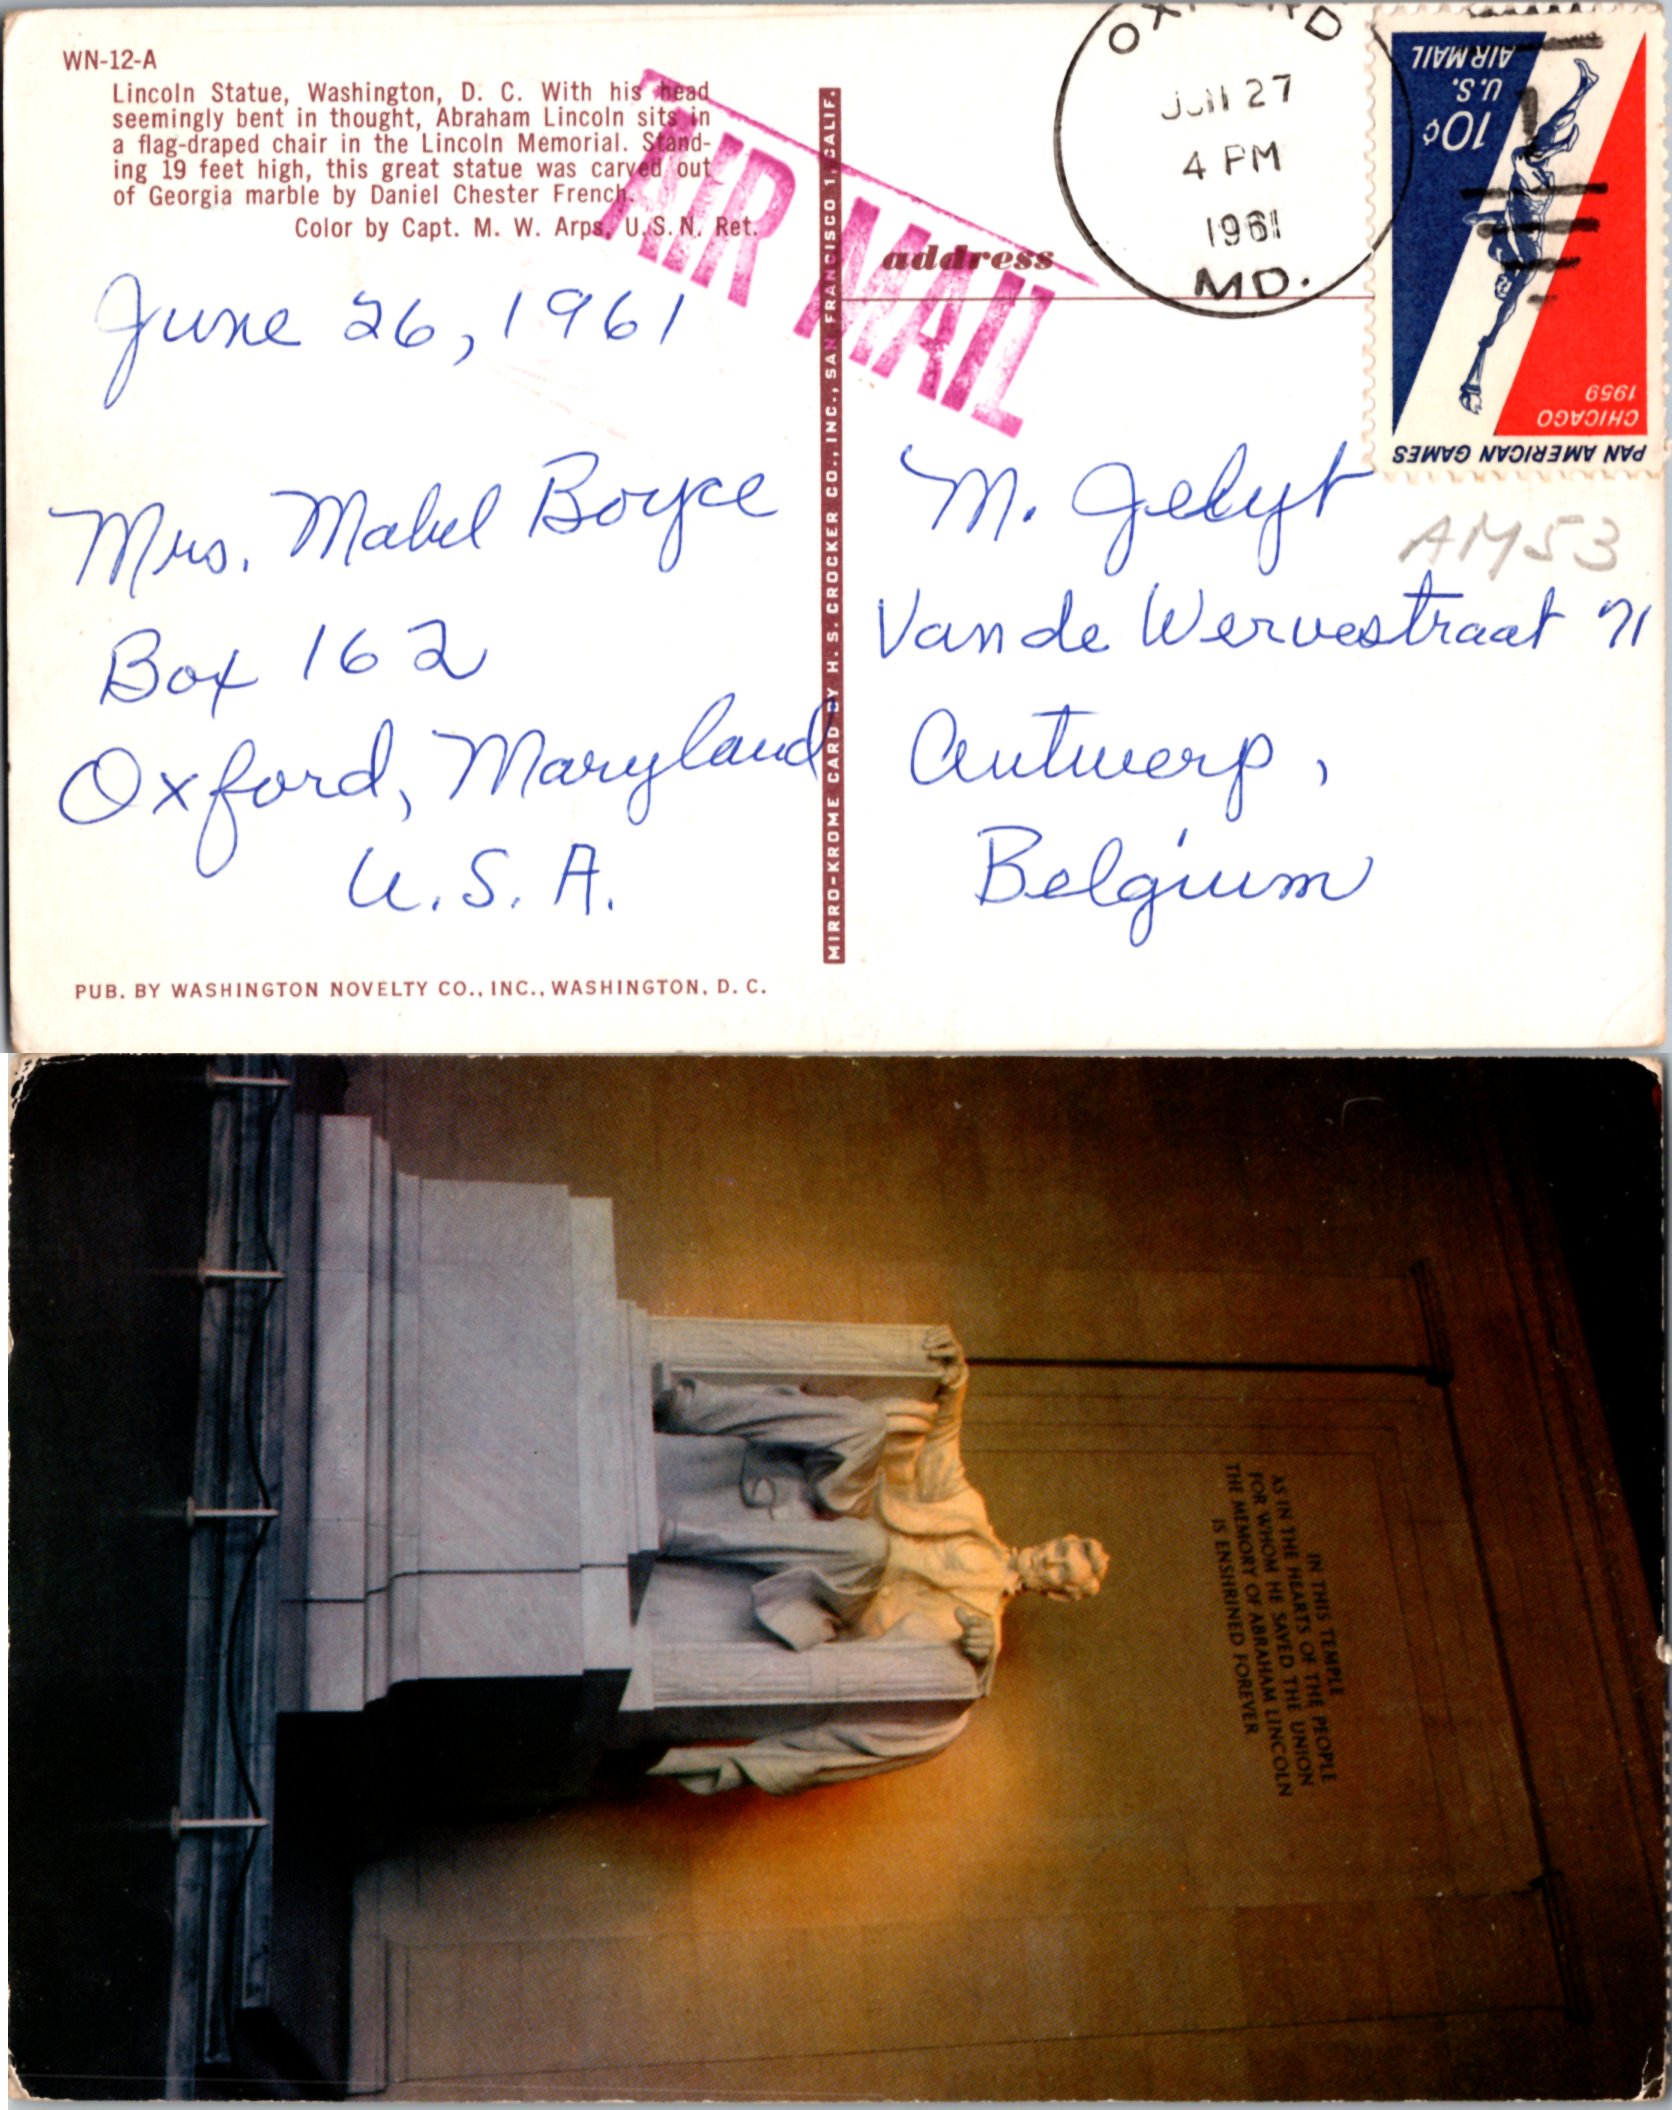 WN-12-A
Lincoln Statue, Washington, D. C. With his head
seemingly bent in thought, Abraham Lincoln sits in
a flag-draped chair in the Lincoln Memorial. Stand-
ing 19 feet high, this great statue was carved out
of Georgia marble by Daniel Chester French.
Color by Capt. M. W. Arps, U.S.N. Ret.
AIR MAIL
June 26, 1961
Mrs. Mabel Boyce
Box 162
Oxford, Maryland
U.S.A.
PUB. BY WASHINGTON NOVELTY CO., INC., WASHINGTON, D. C.
MIRRO-KROME CARD BY H. S. CROCKER CO., INC., SAN FRANCISCO 1, CALIF.
address
OXFORD
JUN 27
4 PM
1961
MD.
PAN AMERICAN GAMES
CHICAGO
1959
10¢
U.S.
AIR MAIL
M. Jelyt
AM53
Van de Wervestraat 71
Antwerp,
Belgium
IN THIS TEMPLE
AS IN THE HEARTS OF THE PEOPLE
FOR WHOM HE SAVED THE UNION
THE MEMORY OF ABRAHAM LINCOLN
IS ENSHRINED FOREVER